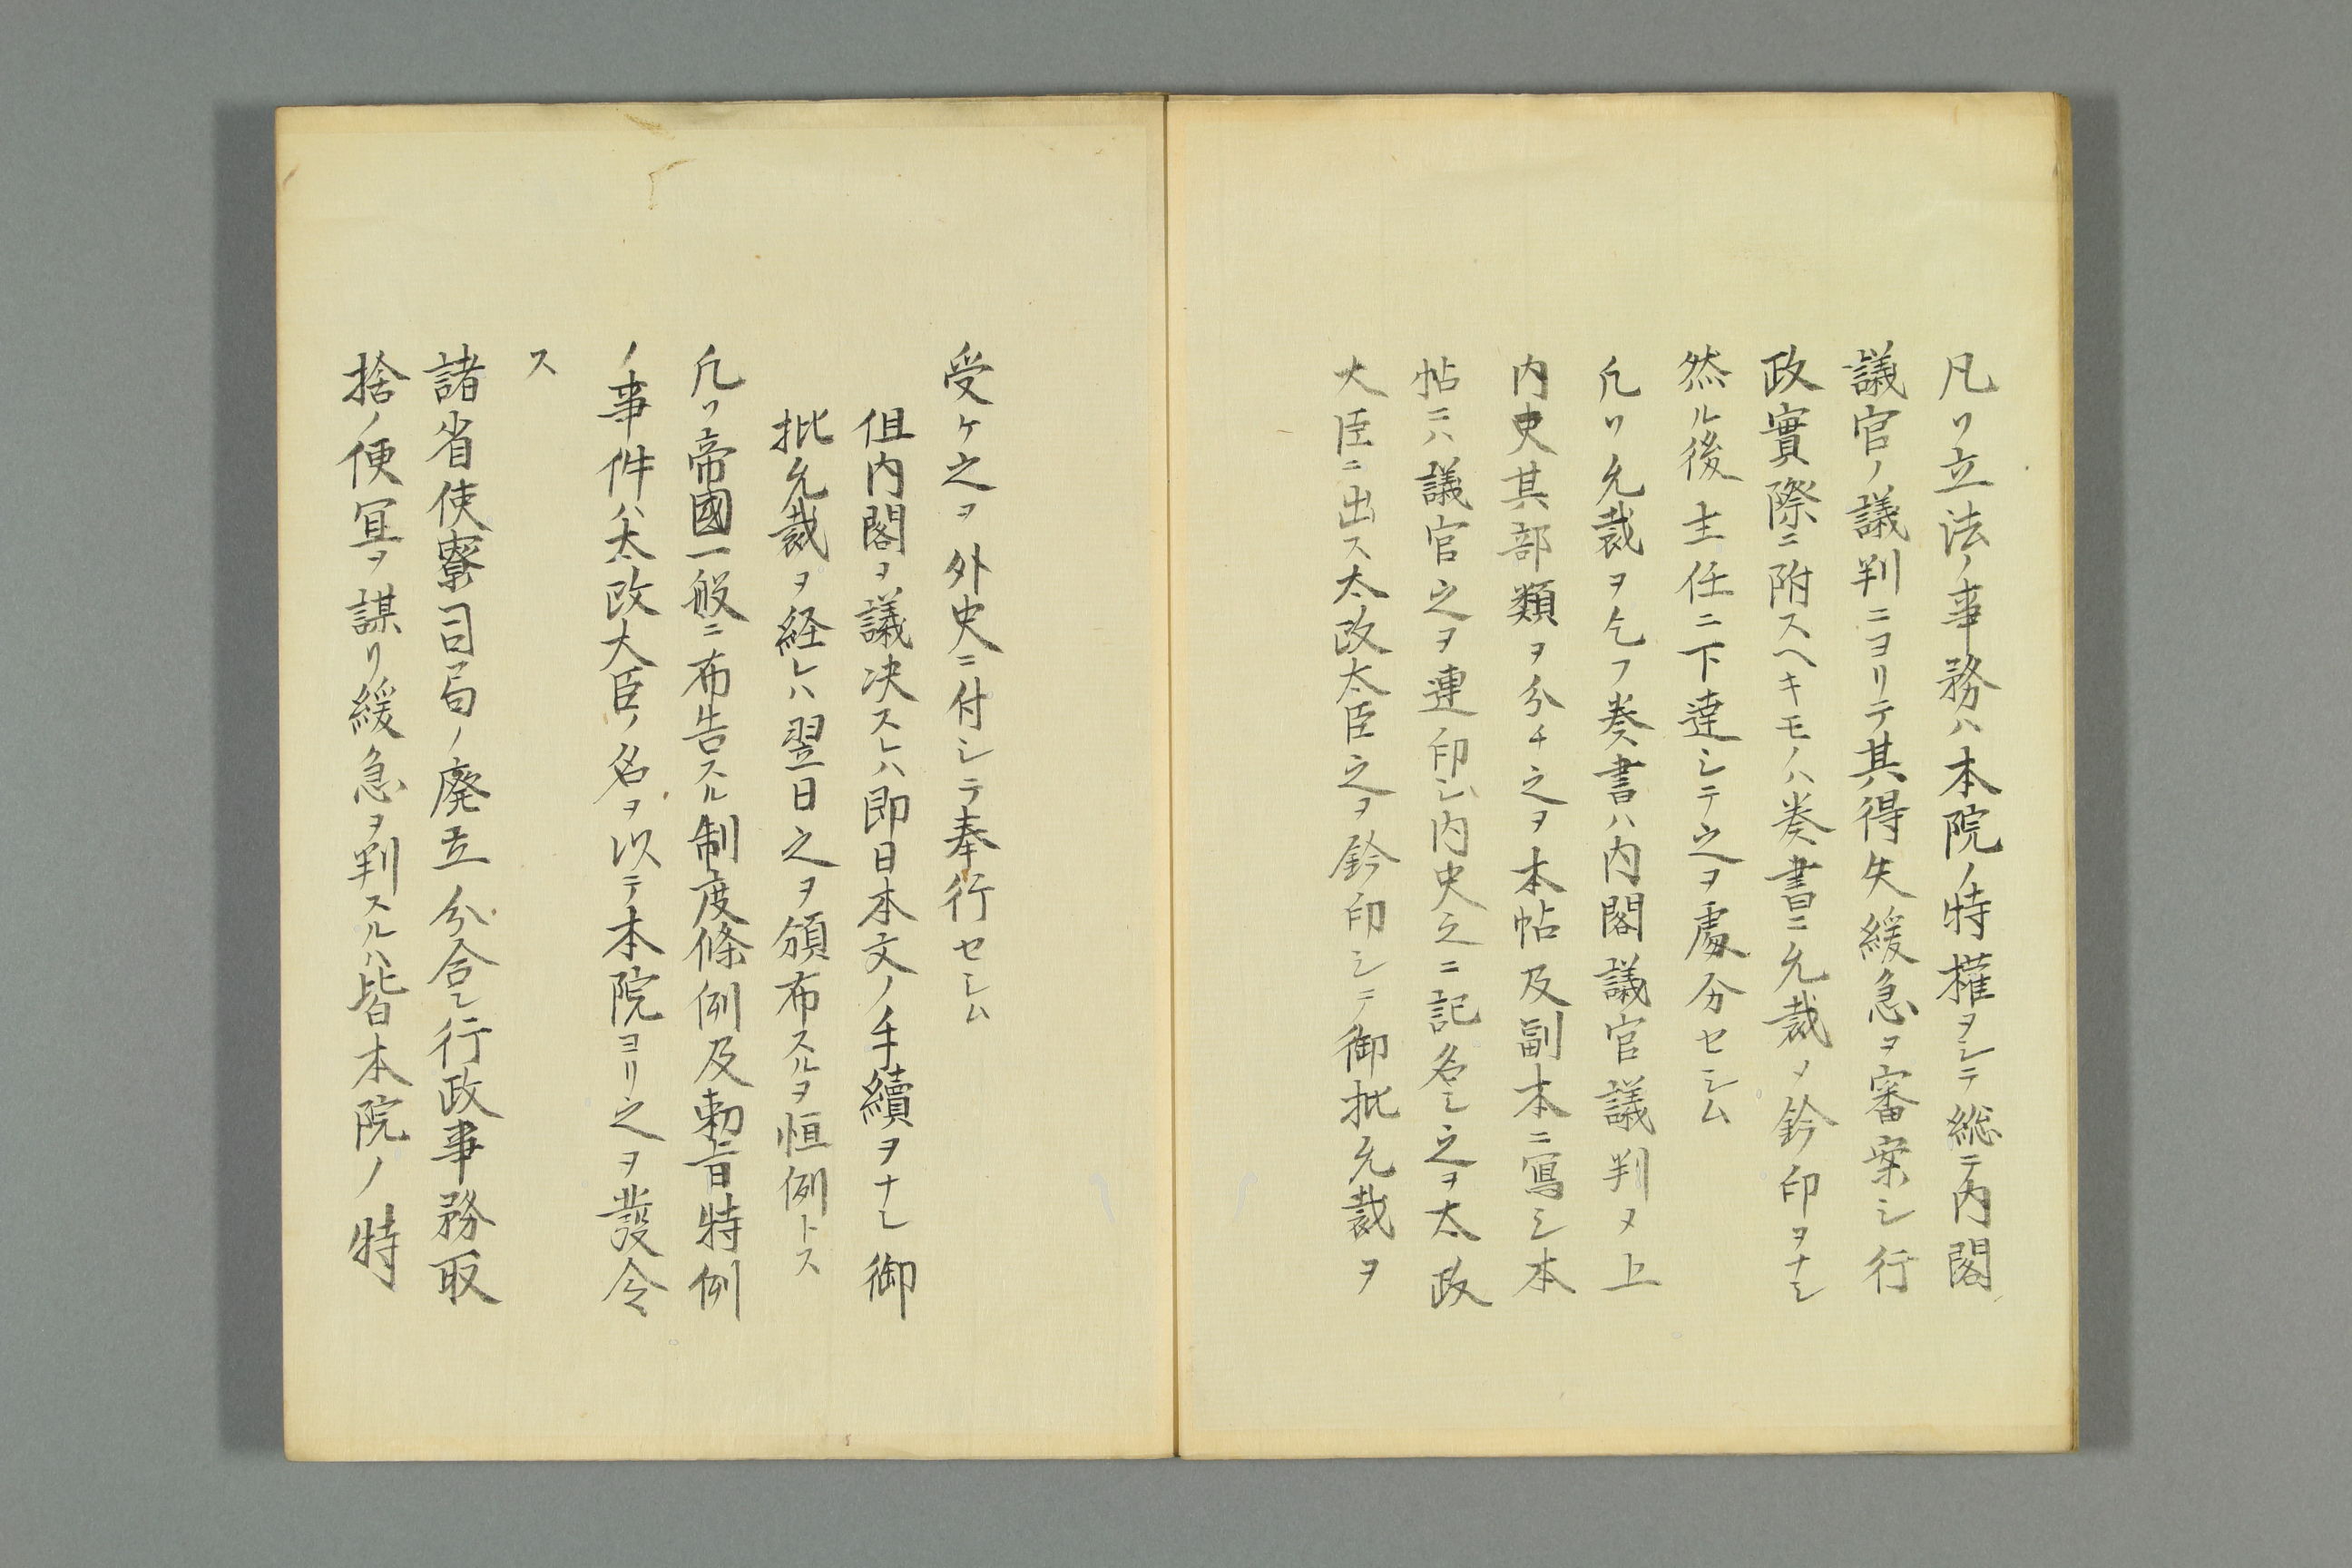 凡ソ立法ノ事務ハ本院ノ特権ヲシテ総テ内閣
議官ノ議判ニヨリテ其得失緩急ヲ審案シ行
政實際ニ附スヘキモノハ奏書ニ允裁ノ鈐印ヲナシ
然ル後主任ニ下達シテ之ヲ處分セシム
凡ソ允裁ヲ乞フ奏書ハ内閣議官議判ノ上
内史其部類ヲ分チ之ヲ本帖及副本ニ寫シ本
帖ニハ議官之ヲ連印シ内史之ニ記名シ之ヲ太政
大臣ニ出ス太政大臣之ヲ鈐印シテ御批允裁ヲ
受ケ之ヲ外史ニ付シテ奉行セシム
但内閣ヲ議决スレハ即日本文ノ手續ヲナシ御
批允裁ヲ経レハ翌日之ヲ頒布スルヲ恒例トス
凡ソ帝國一般ニ布告スル制度條例及勅旨特例
ノ事件ハ太政大臣ノ名ヲ以テ本院ヨリ之ヲ發令
ス
諸省使寮司局ノ廃立分合シ行政事務取
捨ノ便冝ヲ謀リ緩急ヲ判スルハ皆本院ノ特